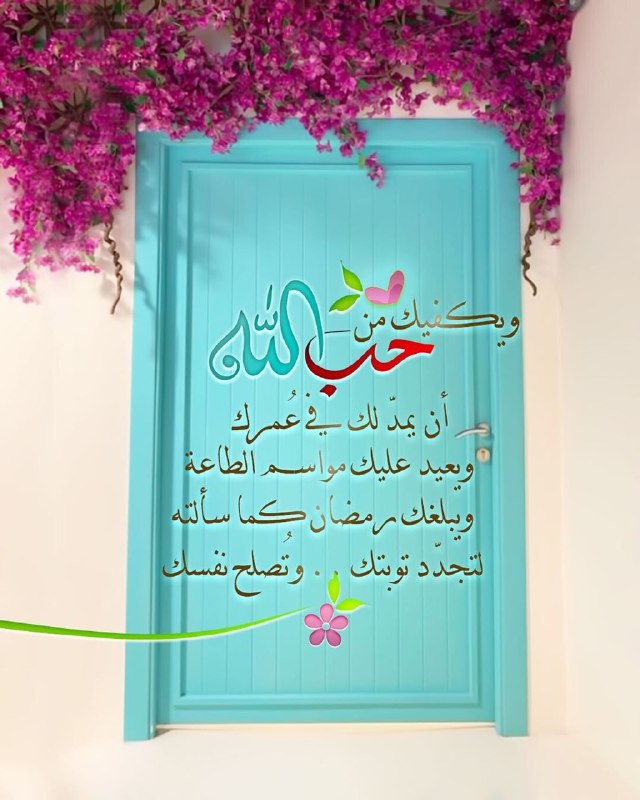 ويكفيك من
حب الله
أن يمدّ لك في عُمرك
ويعيد عليك مواسم الطاعة
ويبلغك رمضان كما سألته
لتجدّد توبتك . . وتُصلح نفسك